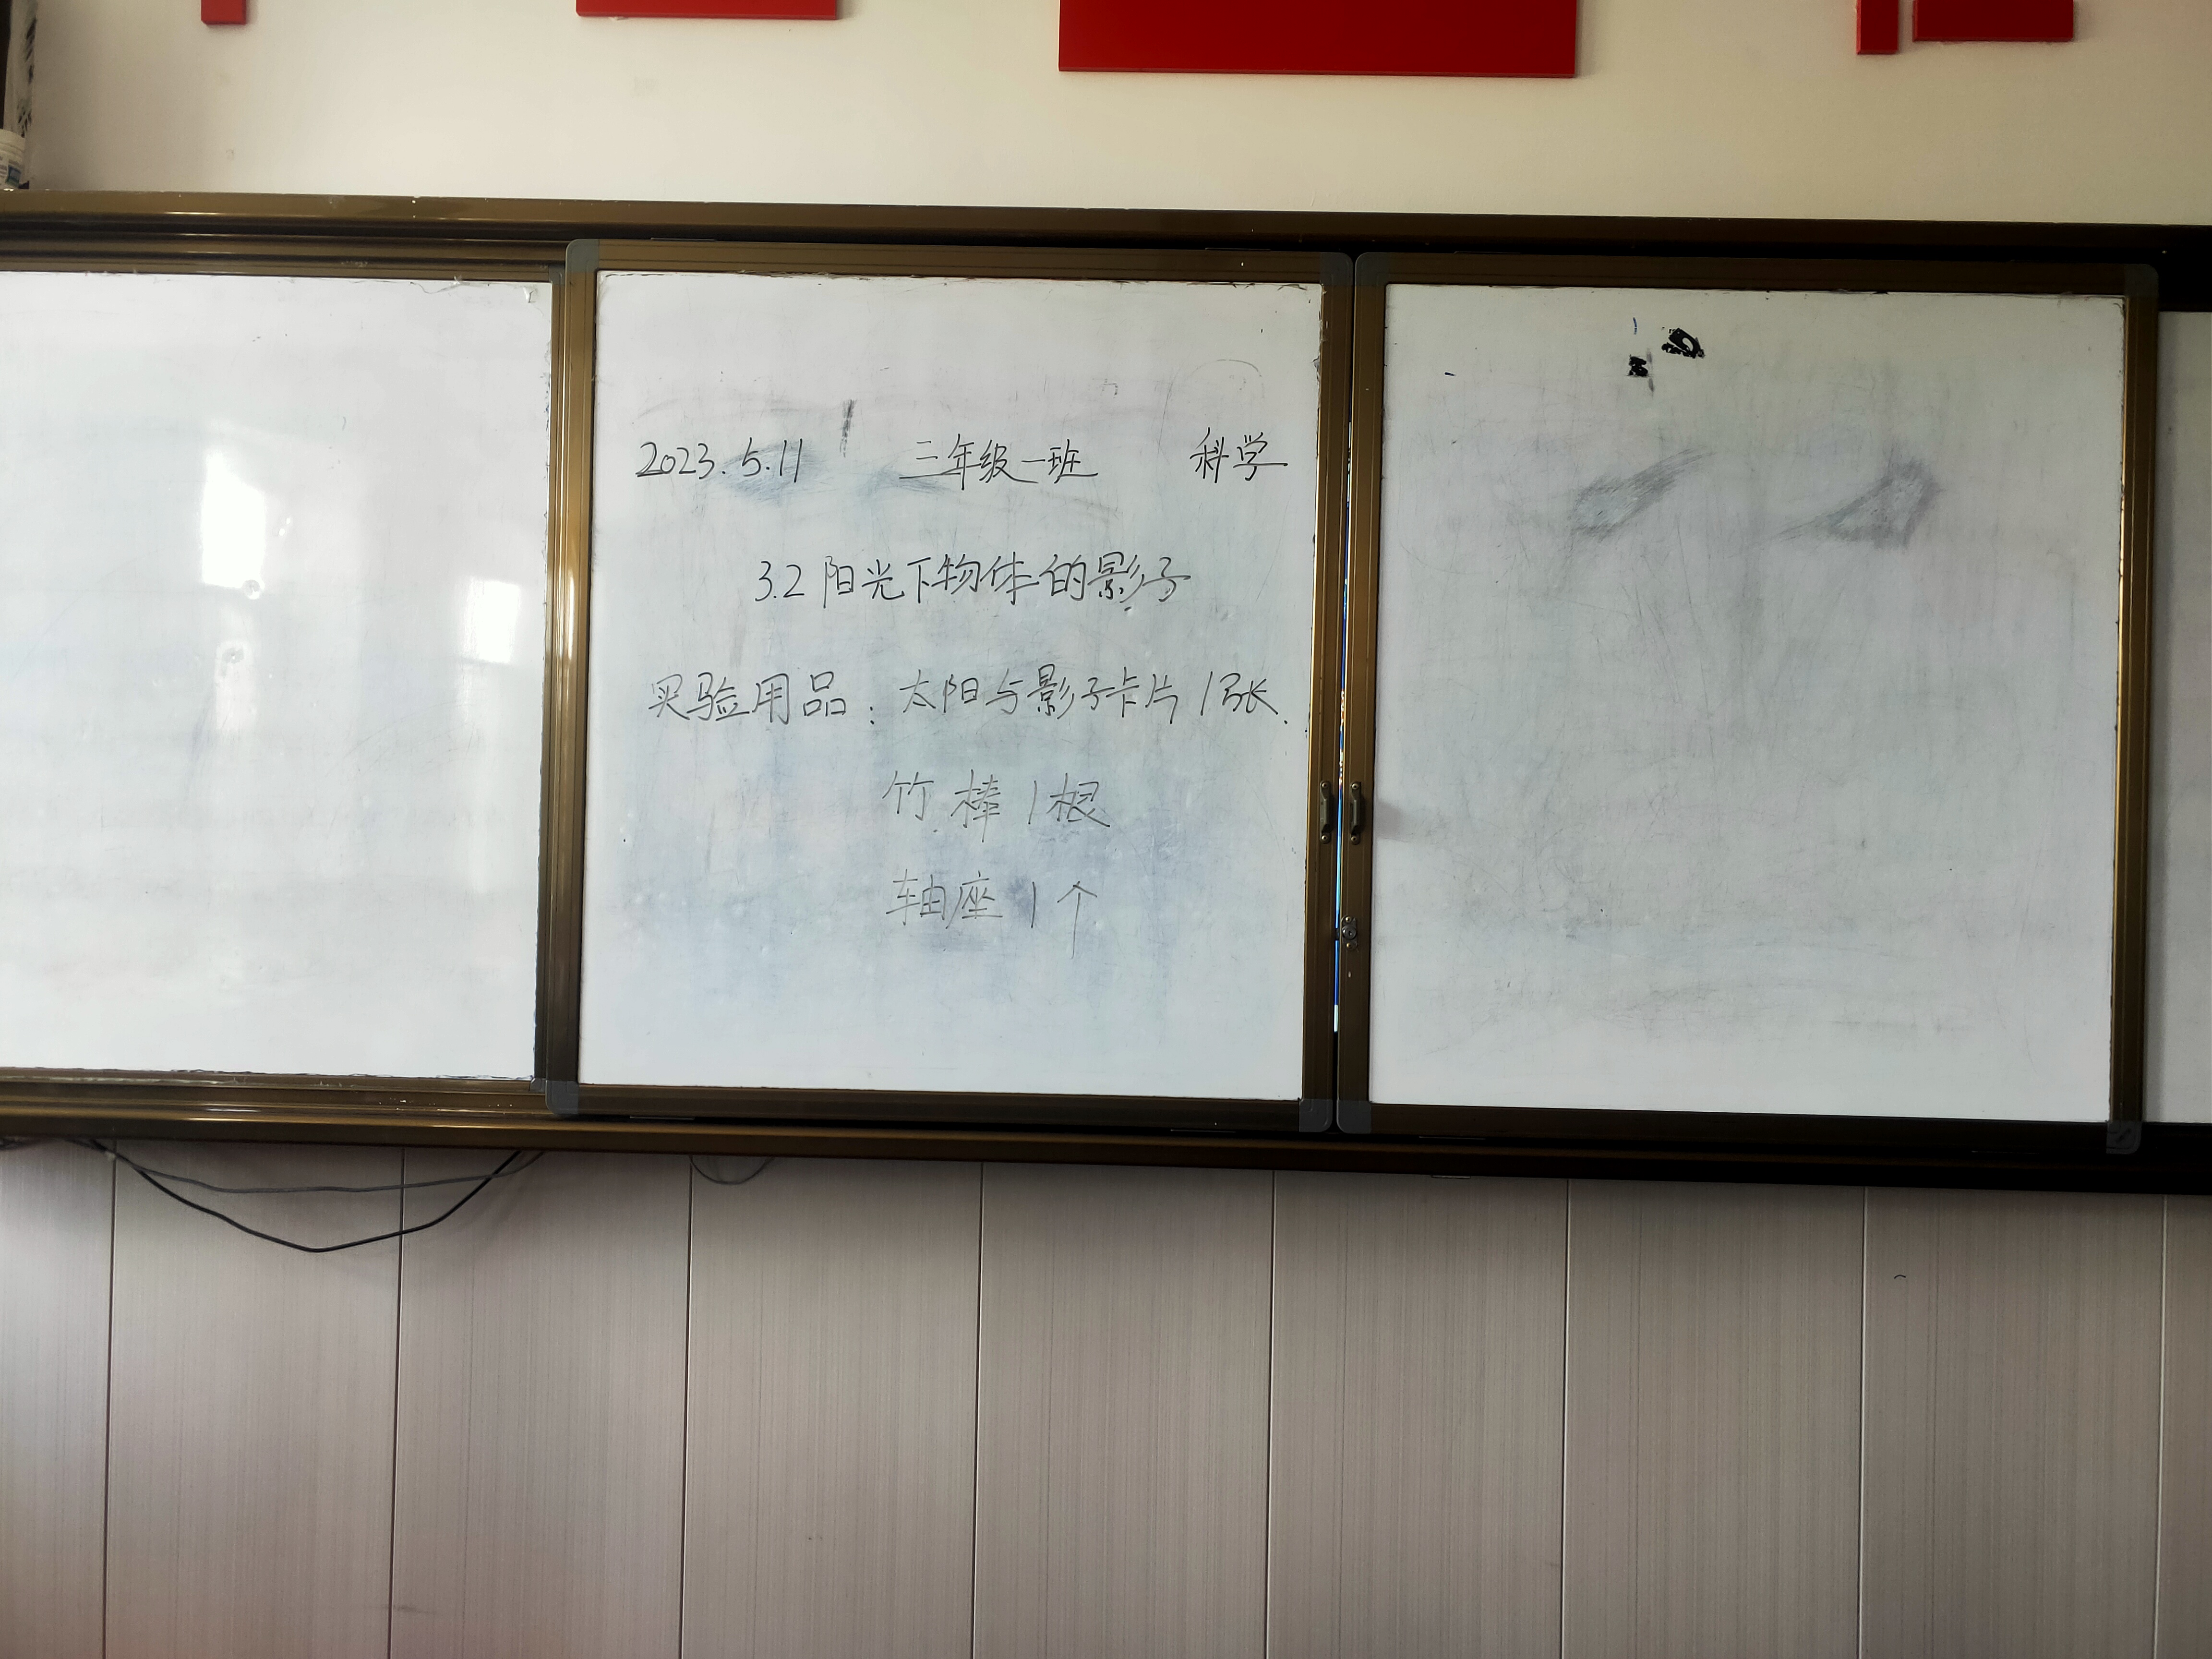 2023.5.11 三年级一班 科学
3.2 阳光下物体的影子
实验用品：太阳与影子卡片1张、
竹棒1根
轴座1个